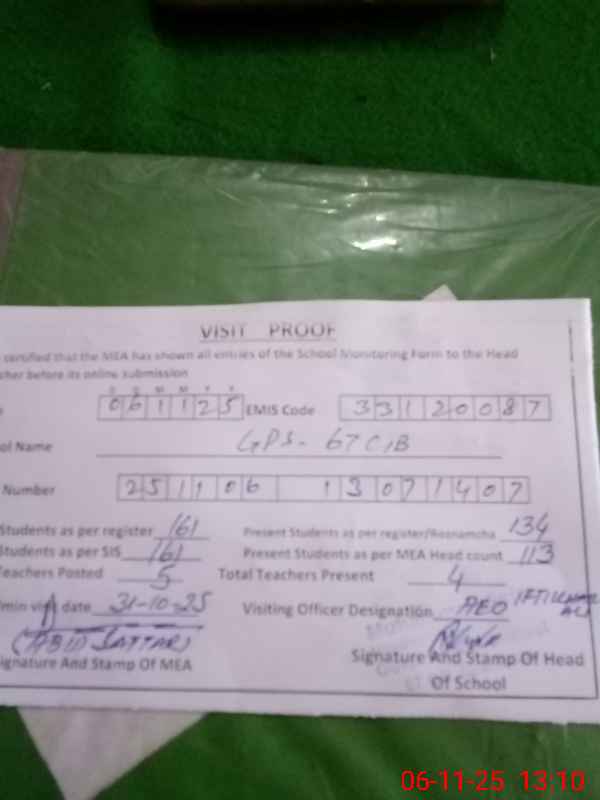 VISIT PROOF
certified that the MEA has shown all entries of the School Monitoring Form to the Head
cher before its online submission
D D M M Y Y
061125 EMIS Code 33120087
ol Name GPS- 67 C/B
Number 251106 13071407
Students as per register 161 Present Students as per register/Rosnamcha 134
Students as per SIS 161 Present Students as per MEA Head count 113
Teachers Posted 5 Total Teachers Present 4
dmin visit date 31-10-25 Visiting Officer Designation AEO
(ABID SATTAR)
ignature And Stamp Of MEA Signature And Stamp Of Head
Of School
06-11-25 13:10